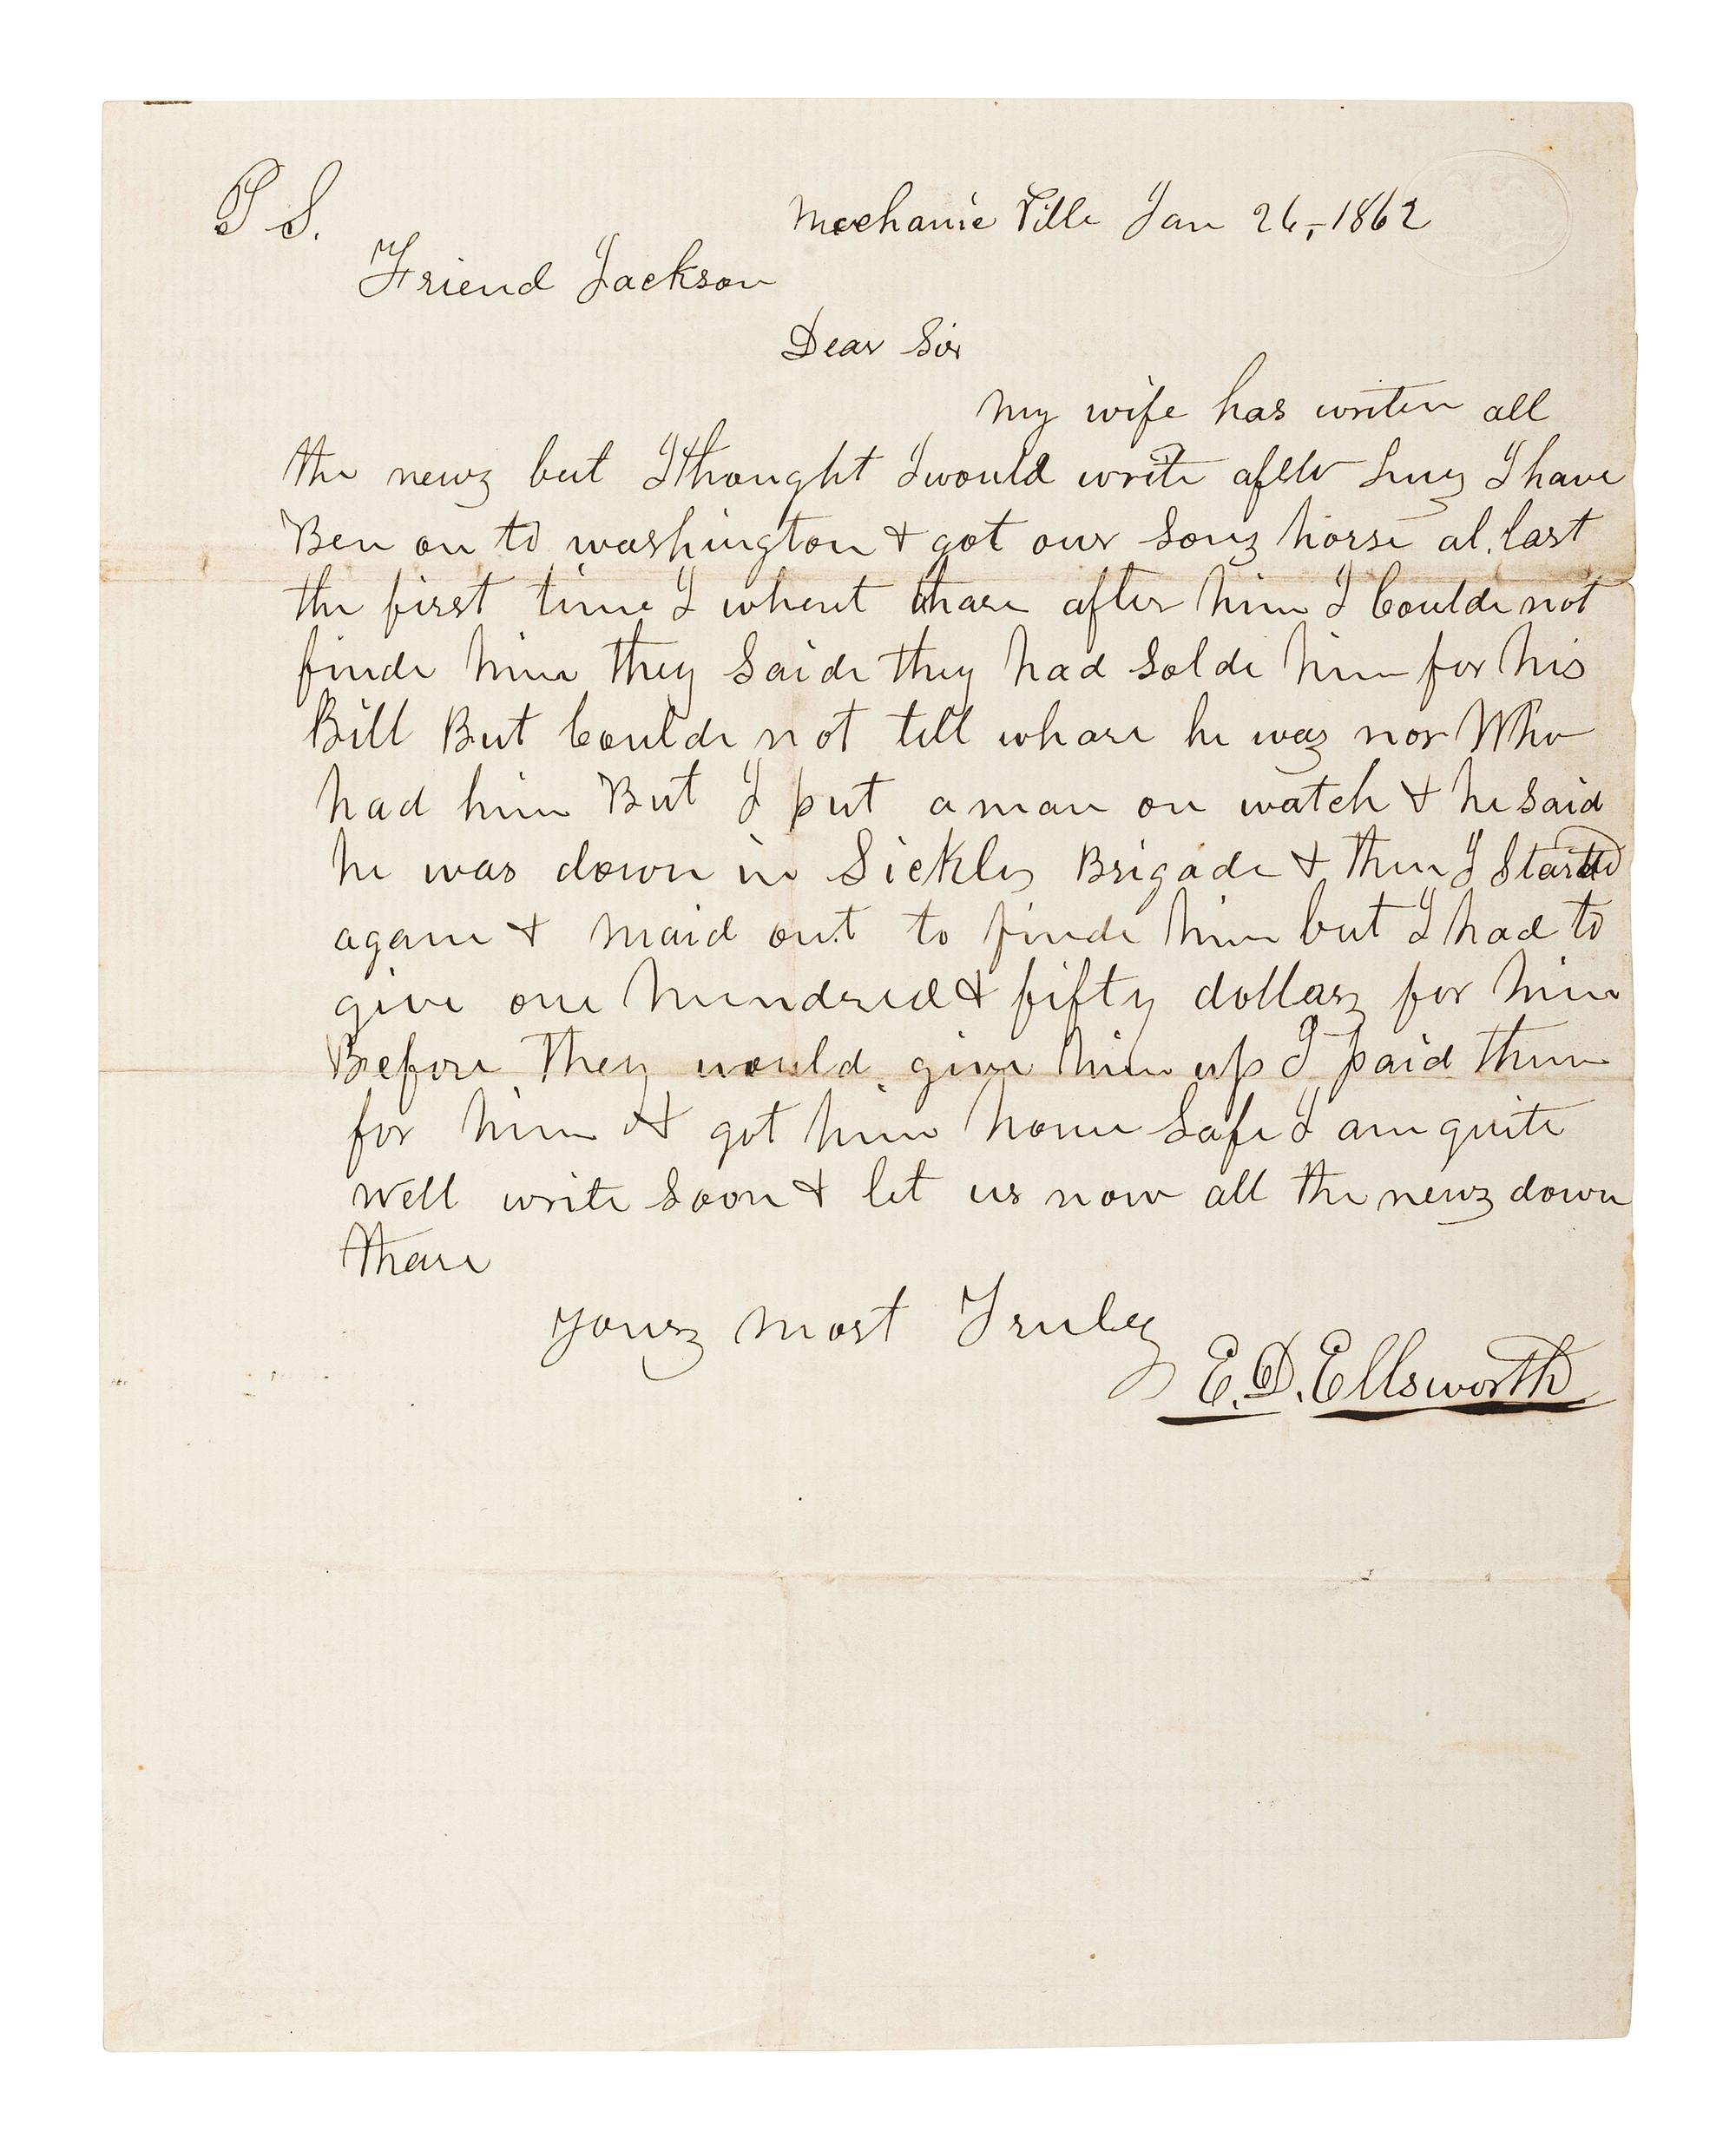 P S.
Mechanic Ville Jan 26, -1862
Friend Jackson
Dear Sir
My wife has writen all
the newz but I thought I would write a few linez I have
Ben on to washington & got our sonz horse at last
the first time I whent thare after him I Coulde not
finde him they saide they had solde him for his
Bill But Coulde not tell whare he waz nor Who
had him But I put a man on watch & he said
he was down in Sickles Brigade & then I Started
again & maid out to finde him but I had to
give one hundred & fifty dollarz for him
Before they would give him up I paid them
for him & got him home safe I am quite
well write soon & let us now all the newz down
thare
yourz most Truley
E. D. Ellsworth